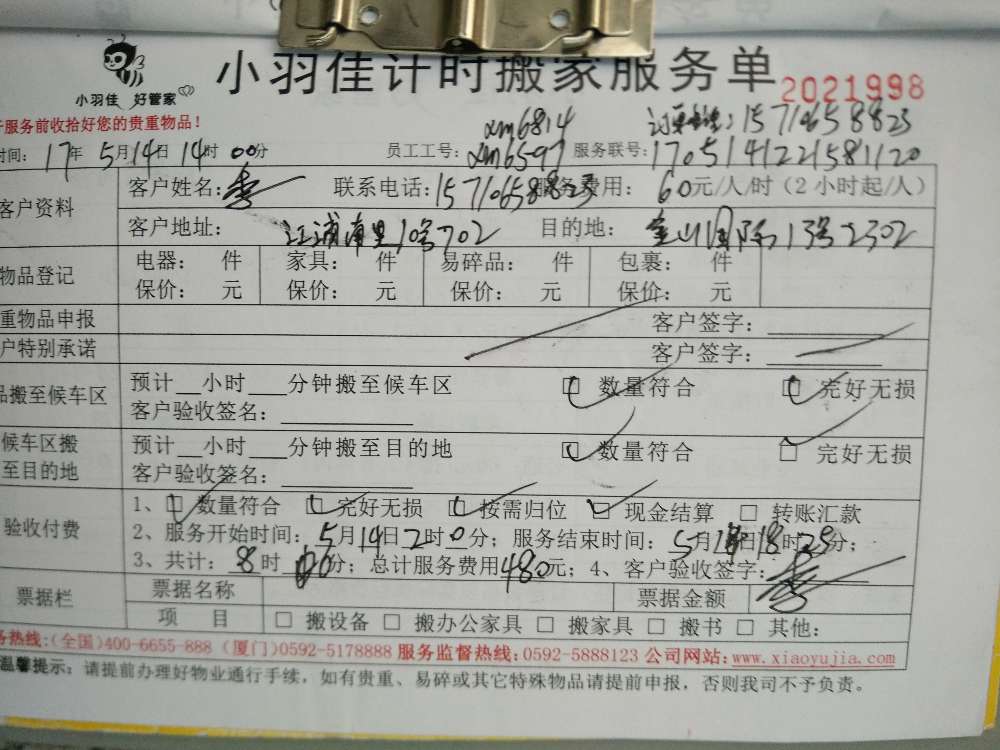 小羽佳计时搬家服务单 2021998
小羽佳 好管家
服务前收拾好您的贵重物品！
xm6814 15710658823
时间：17年5月14日14时00分 员工工号：xm6597 服务联号：1705141221581120
客户资料 客户姓名：李 联系电话：15710658823 服务费用：60元/人/时（2小时起/人）
客户地址：江浦南里10号702 目的地：金山国际13号2302
物品登记 电器： 件 家具： 件 易碎品： 件 包裹： 件
保价： 元 保价： 元 保价： 元 保价： 元
重物品申报 客户签字：
户特别承诺 客户签字：
品搬至候车区 预计__小时___分钟搬至候车区 □ 数量符合 □ 完好无损
客户验收签名：
候车区搬至目的地 预计__小时___分钟搬至目的地 □ 数量符合 □ 完好无损
客户验收签名：
验收付费 1、□ 数量符合 □ 完好无损 □ 按需归位 □ 现金结算 □ 转账汇款
2、服务开始时间：5月14日2时0分；服务结束时间：5月14日18时25分；
3、共计：8时00分；总计服务费用480元；4、客户验收签字：李
票据栏 票据名称 票据金额
项 目 □ 搬设备 □ 搬办公家具 □ 搬家具 □ 搬书 □ 其他：
务热线：(全国)400-6655-888 (厦门)0592-5178888 服务监督热线：0592-5888123 公司网站：www.xiaoyujia.com
温馨提示：请提前办理好物业通行手续，如有贵重、易碎或其它特殊物品请提前申报，否则我司不予负责。